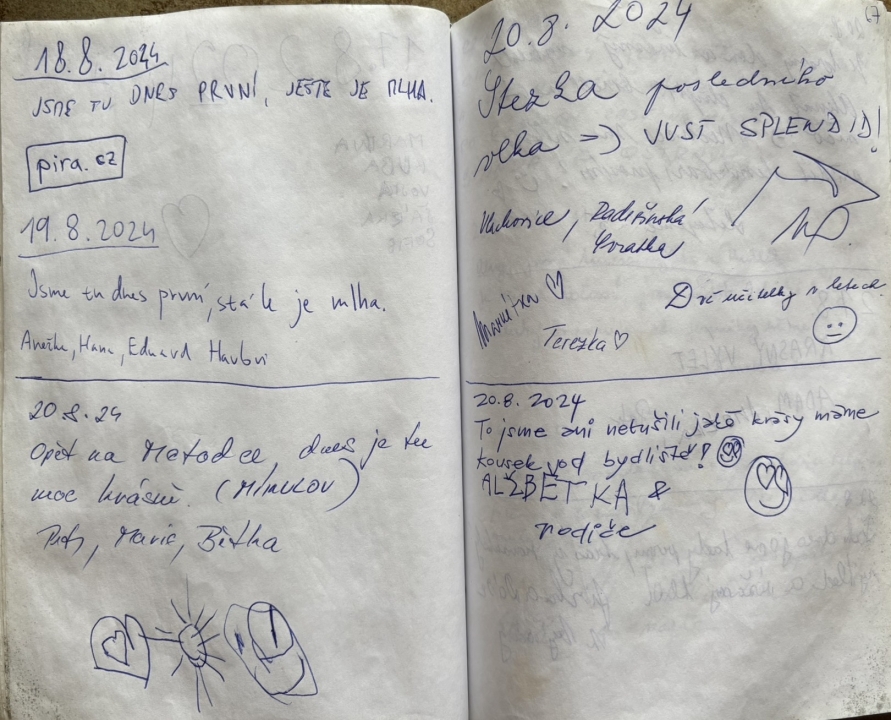 18.8.2024
JSME TU DNES PRVNÍ, JEŠTE JE MLHA.
pira.cz
19.8.2024
Jsme tu dnes první, stále je mlha.
Anežka, Hana, Eduard
20.8.24
Opět na Metodce dnes je tu
moc krásně. (MIKULOV)
Petr, Marie, Bětka
67
20.8.2024
Stezka posledního
vlka => JUST SPLENDID!
Vlachovice,
Terezka ♡
Dvě učitelky v letech.
20.8.2024
To jsme ani netušili jaké krásy máme
kousek od bydliště!
ALŽBĚTKA &
rodiče